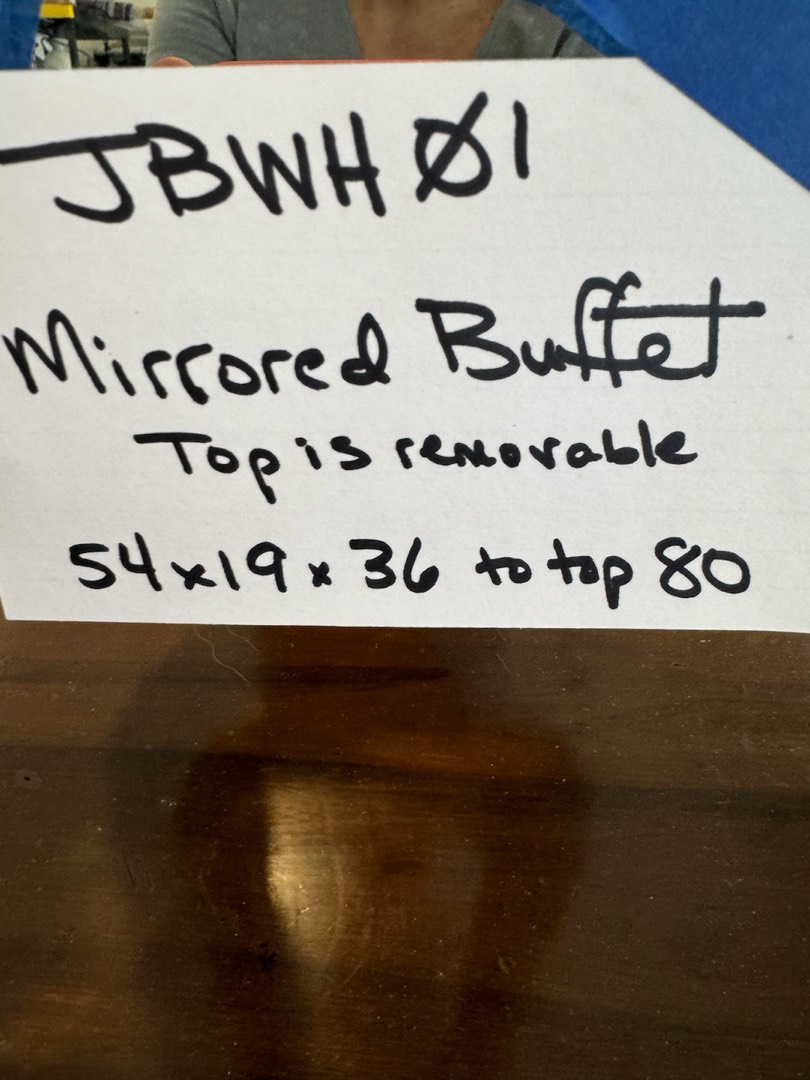 JBWH Ø1
Mirrored Buffet
Top is removable
54x19x36 to top 80